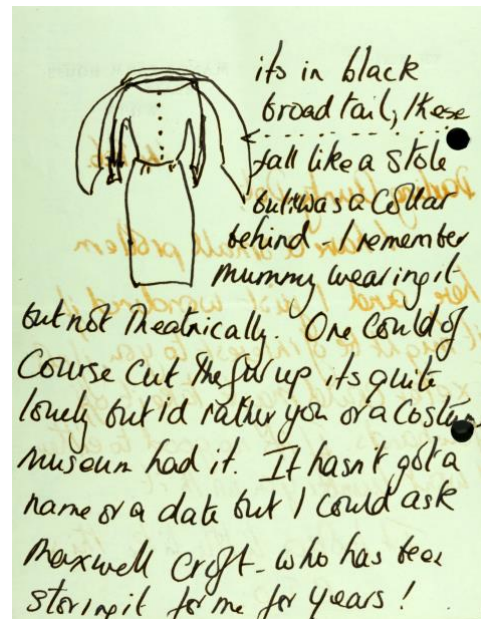 its in black
broadtail, these
fall like a stole
but was a Collar
behind - I remember
Mummy wearing it
but not Theatrically. One could of
Course Cut the fur up its quite
lovely but id rather you or a Costume
museum had it. It hasn't got a
name or a date but I could ask
Maxwell Croft - who has been
storing it for me for years!